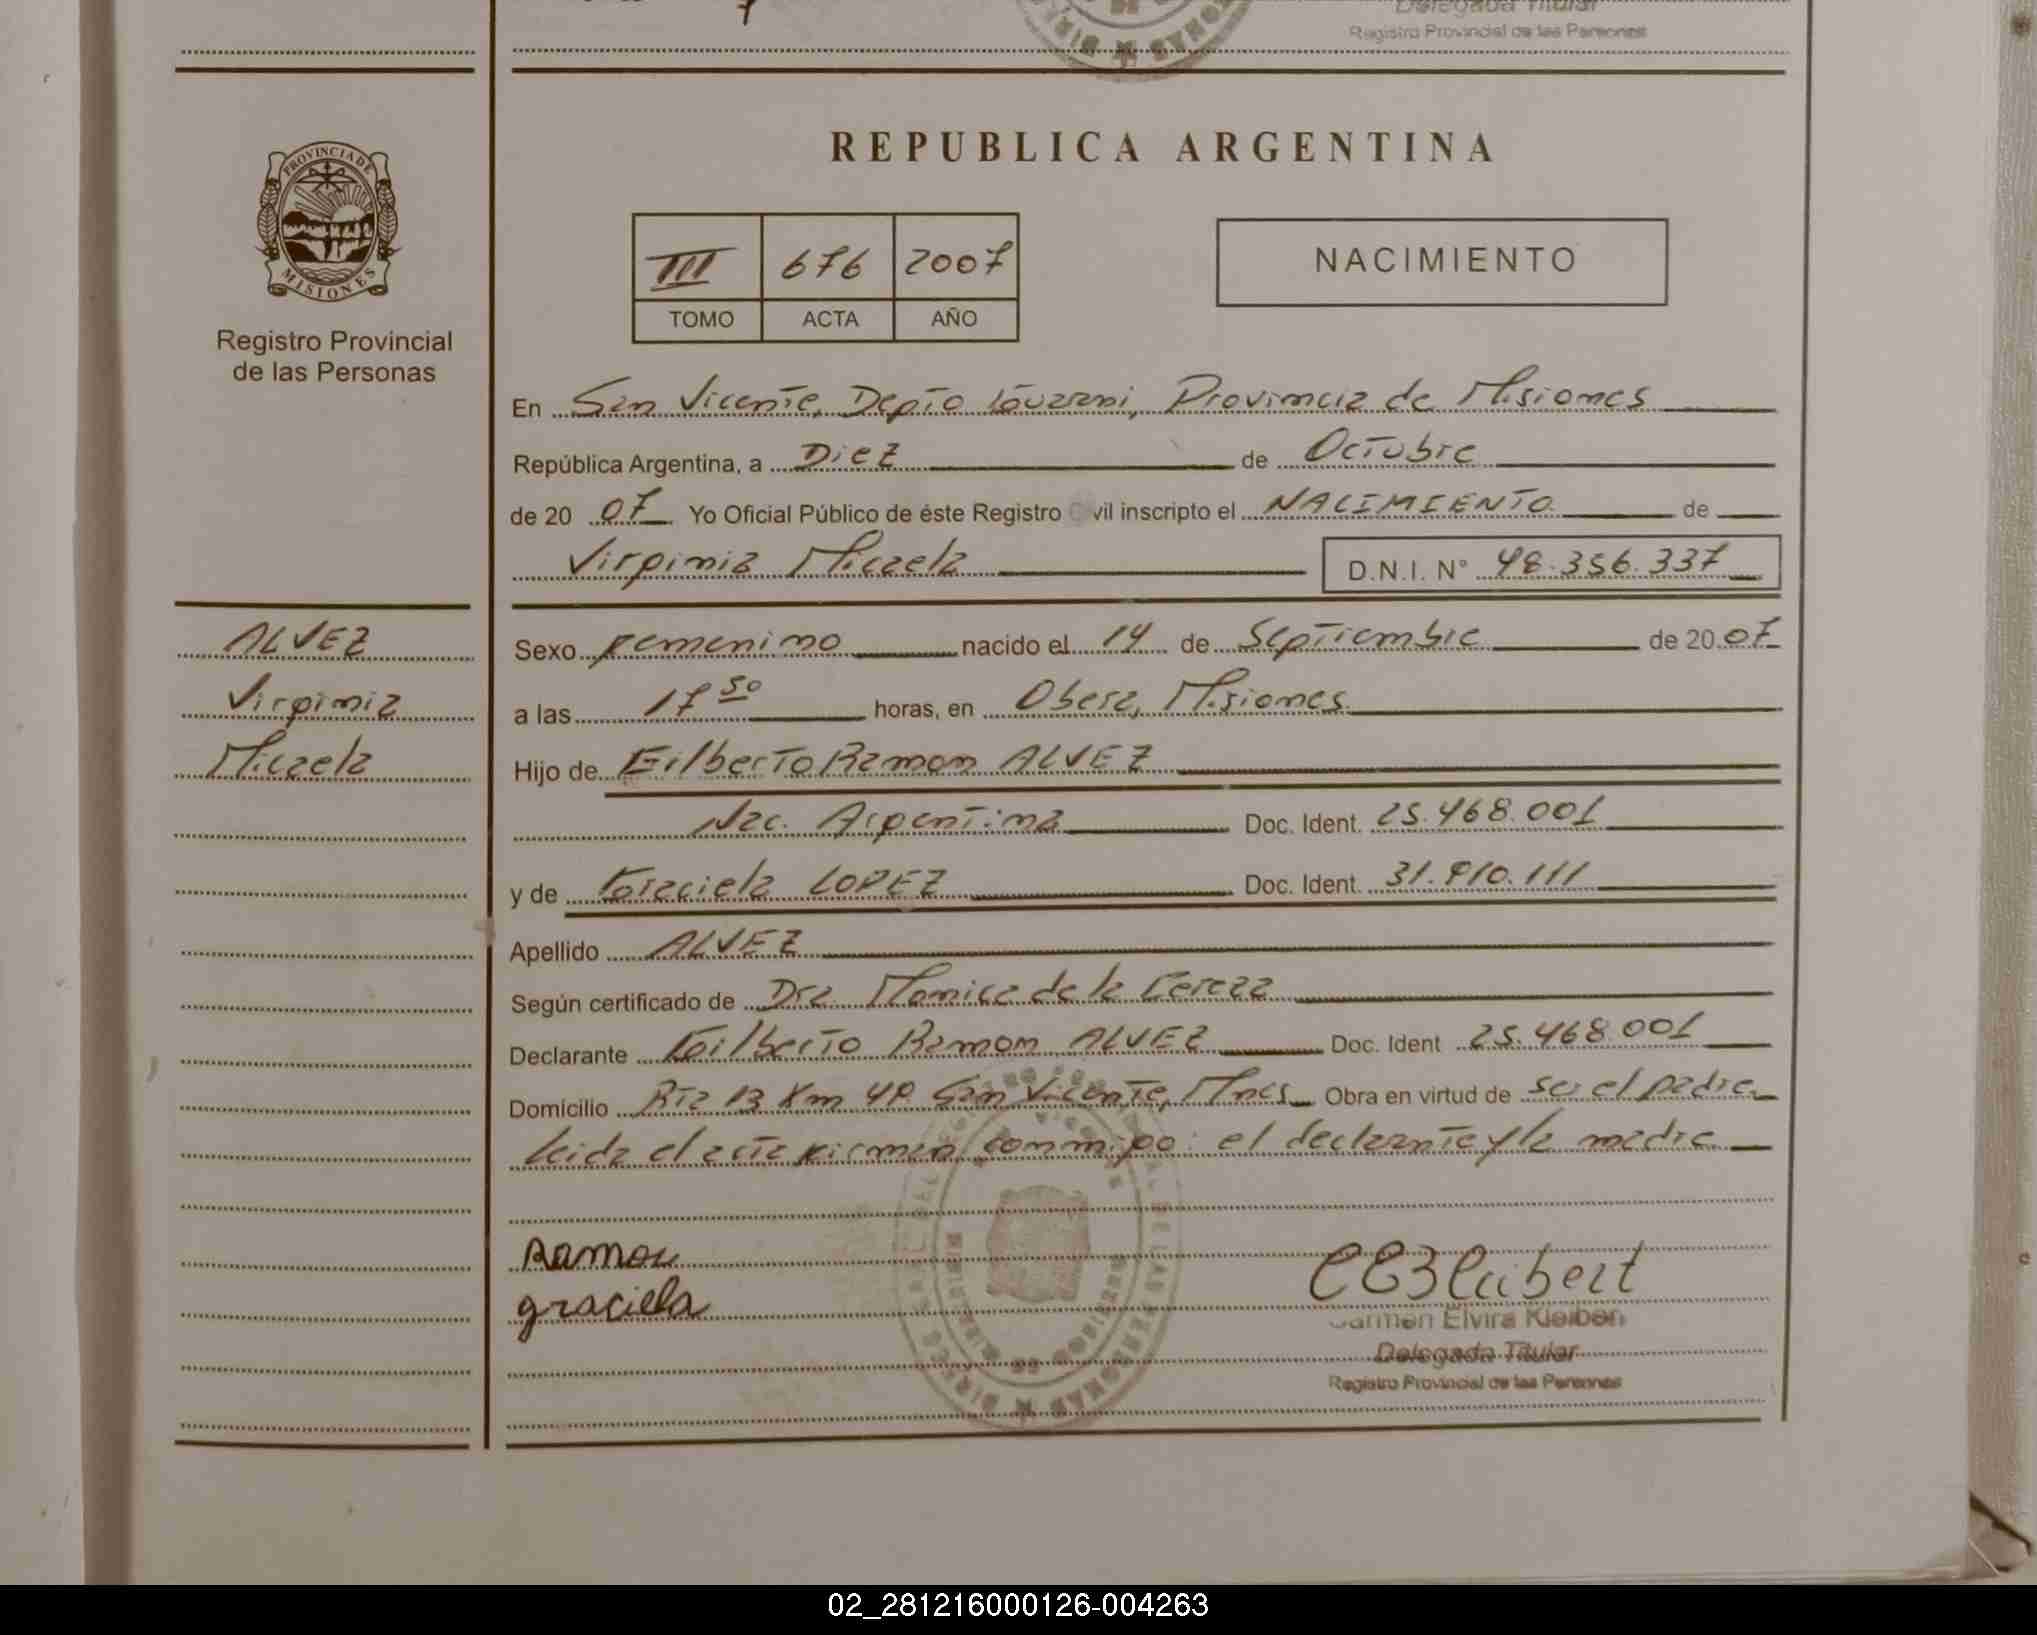 Delegada Titular
Registro Provincial de las Personas
REPUBLICA ARGENTINA
PROVINCIA DE
MISIONES
Registro Provincial
de las Personas
III 676 2007
TOMO ACTA AÑO
NACIMIENTO
En San Vicente, Depto Guarani, Provincia de Misiones
República Argentina, a Diez de Octubre
de 20 07 Yo Oficial Público de éste Registro Civil inscripto el NACIMIENTO de
Virginia Micaela D.N.I. N° 48.356.337
ALVEZ
Virginia
Micaela
Sexo femenino nacido el 14 de Septiembre de 20 07
a las 17 50 horas, en Obera, Misiones
Hijo de Gilberto Ramon ALVEZ
Nac. Argentina Doc. Ident. 25.468.001
y de Graciela LOPEZ Doc. Ident. 31.910.111
Apellido ALVEZ
Según certificado de Dra Monica de la
Declarante Gilberto Ramon ALVEZ Doc. Ident 25.468.001
Domicilio Rta 13 Km 49 San Vicente, Mnes Obra en virtud de ser el padre
leida el acta firman conmigo: el declarante y la madre
Ramon
graciela
Carmen Elvira Kleibert
Delegada Titular
Registro Provincial de las Personas
02_281216000126-004263